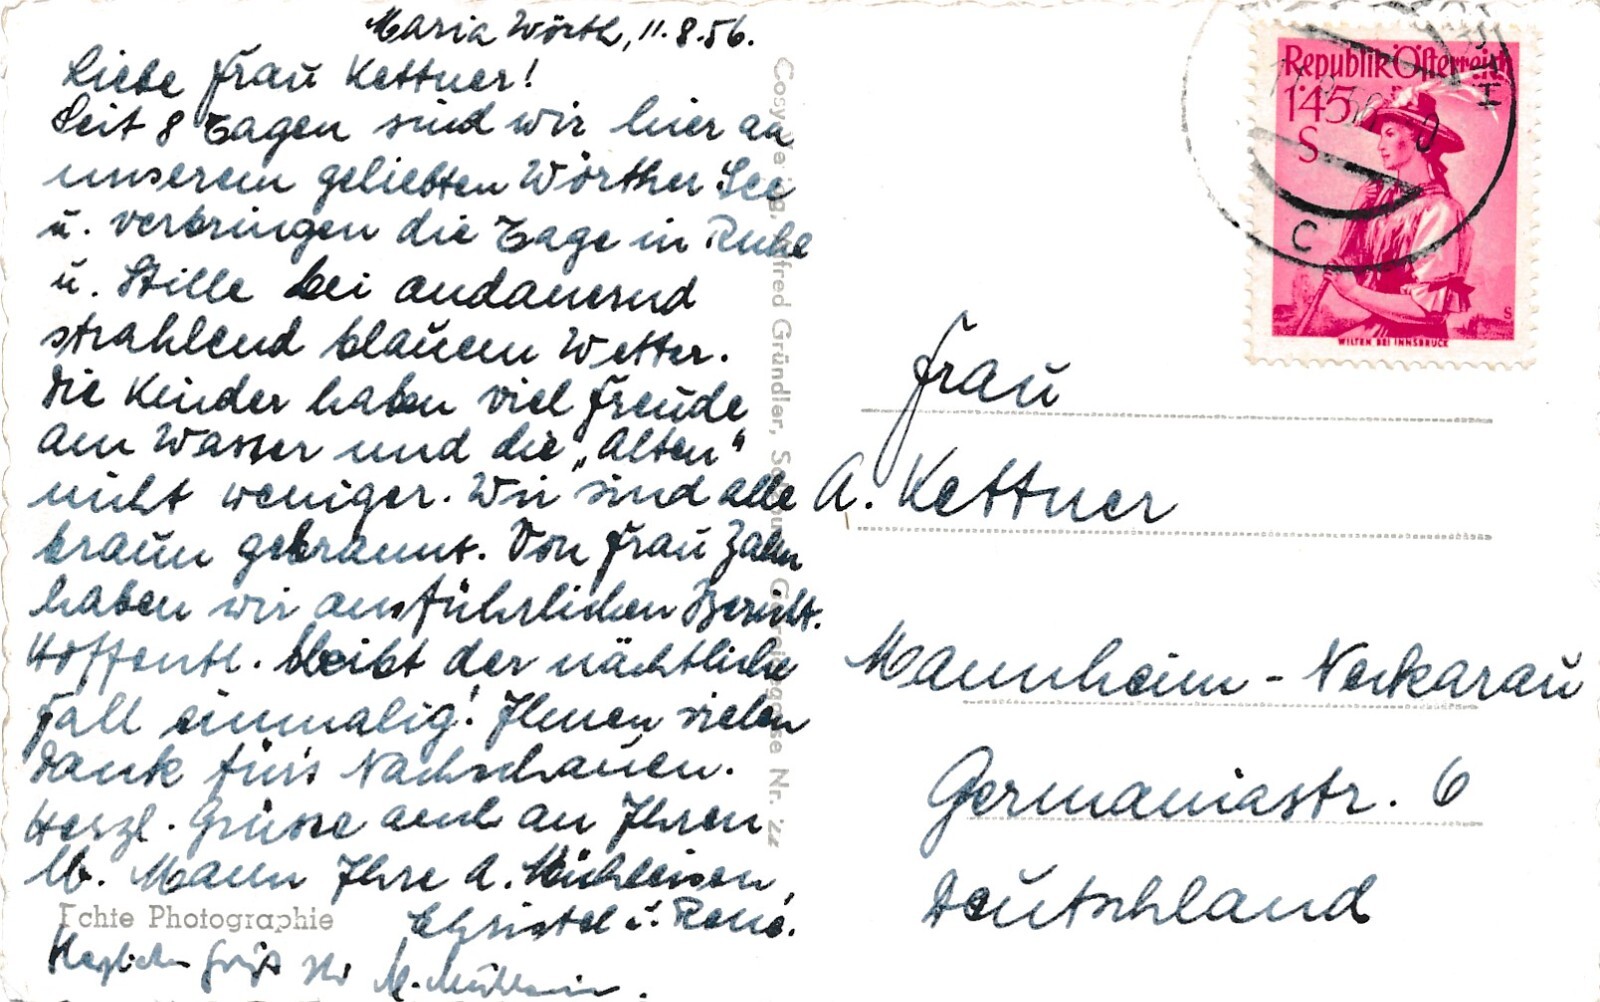 Maria Wörth, 11.8.56.
Liebe Frau Kettner!
Seit 8 Tagen sind wir hier an
unserem geliebten Wörther See
u. verbringen die Tage in Ruhe
u. Stille bei andauernd
strahlend blauem Wetter.
Die Kinder haben viel Freude
am Wasser und die „Alten“
nicht weniger. Wir sind alle
braun gebrannt. Von Frau Zahn
haben wir ausführlichen Bericht.
Hoffentl. bleibt der nächtliche
Fall einmalig! Ihnen vielen
Dank für's Nachschauen.
Herzl. Grüsse auch an Ihren
lb. Mann Ihre A. Mühleisen,
Christel u. René.
Herzlichen Gruß Ihr M. Mühleisen.
Echte Photographie
Cosy-Verlag, Alfred Gründler, Salzburg,
Nr. 22
Republik Österreich
1·45
S
WILTEN BEI INNSBRUCK
S
C
Frau
A. Kettner
Mannheim-Neckarau
Germaniastr. 6
Deutschland